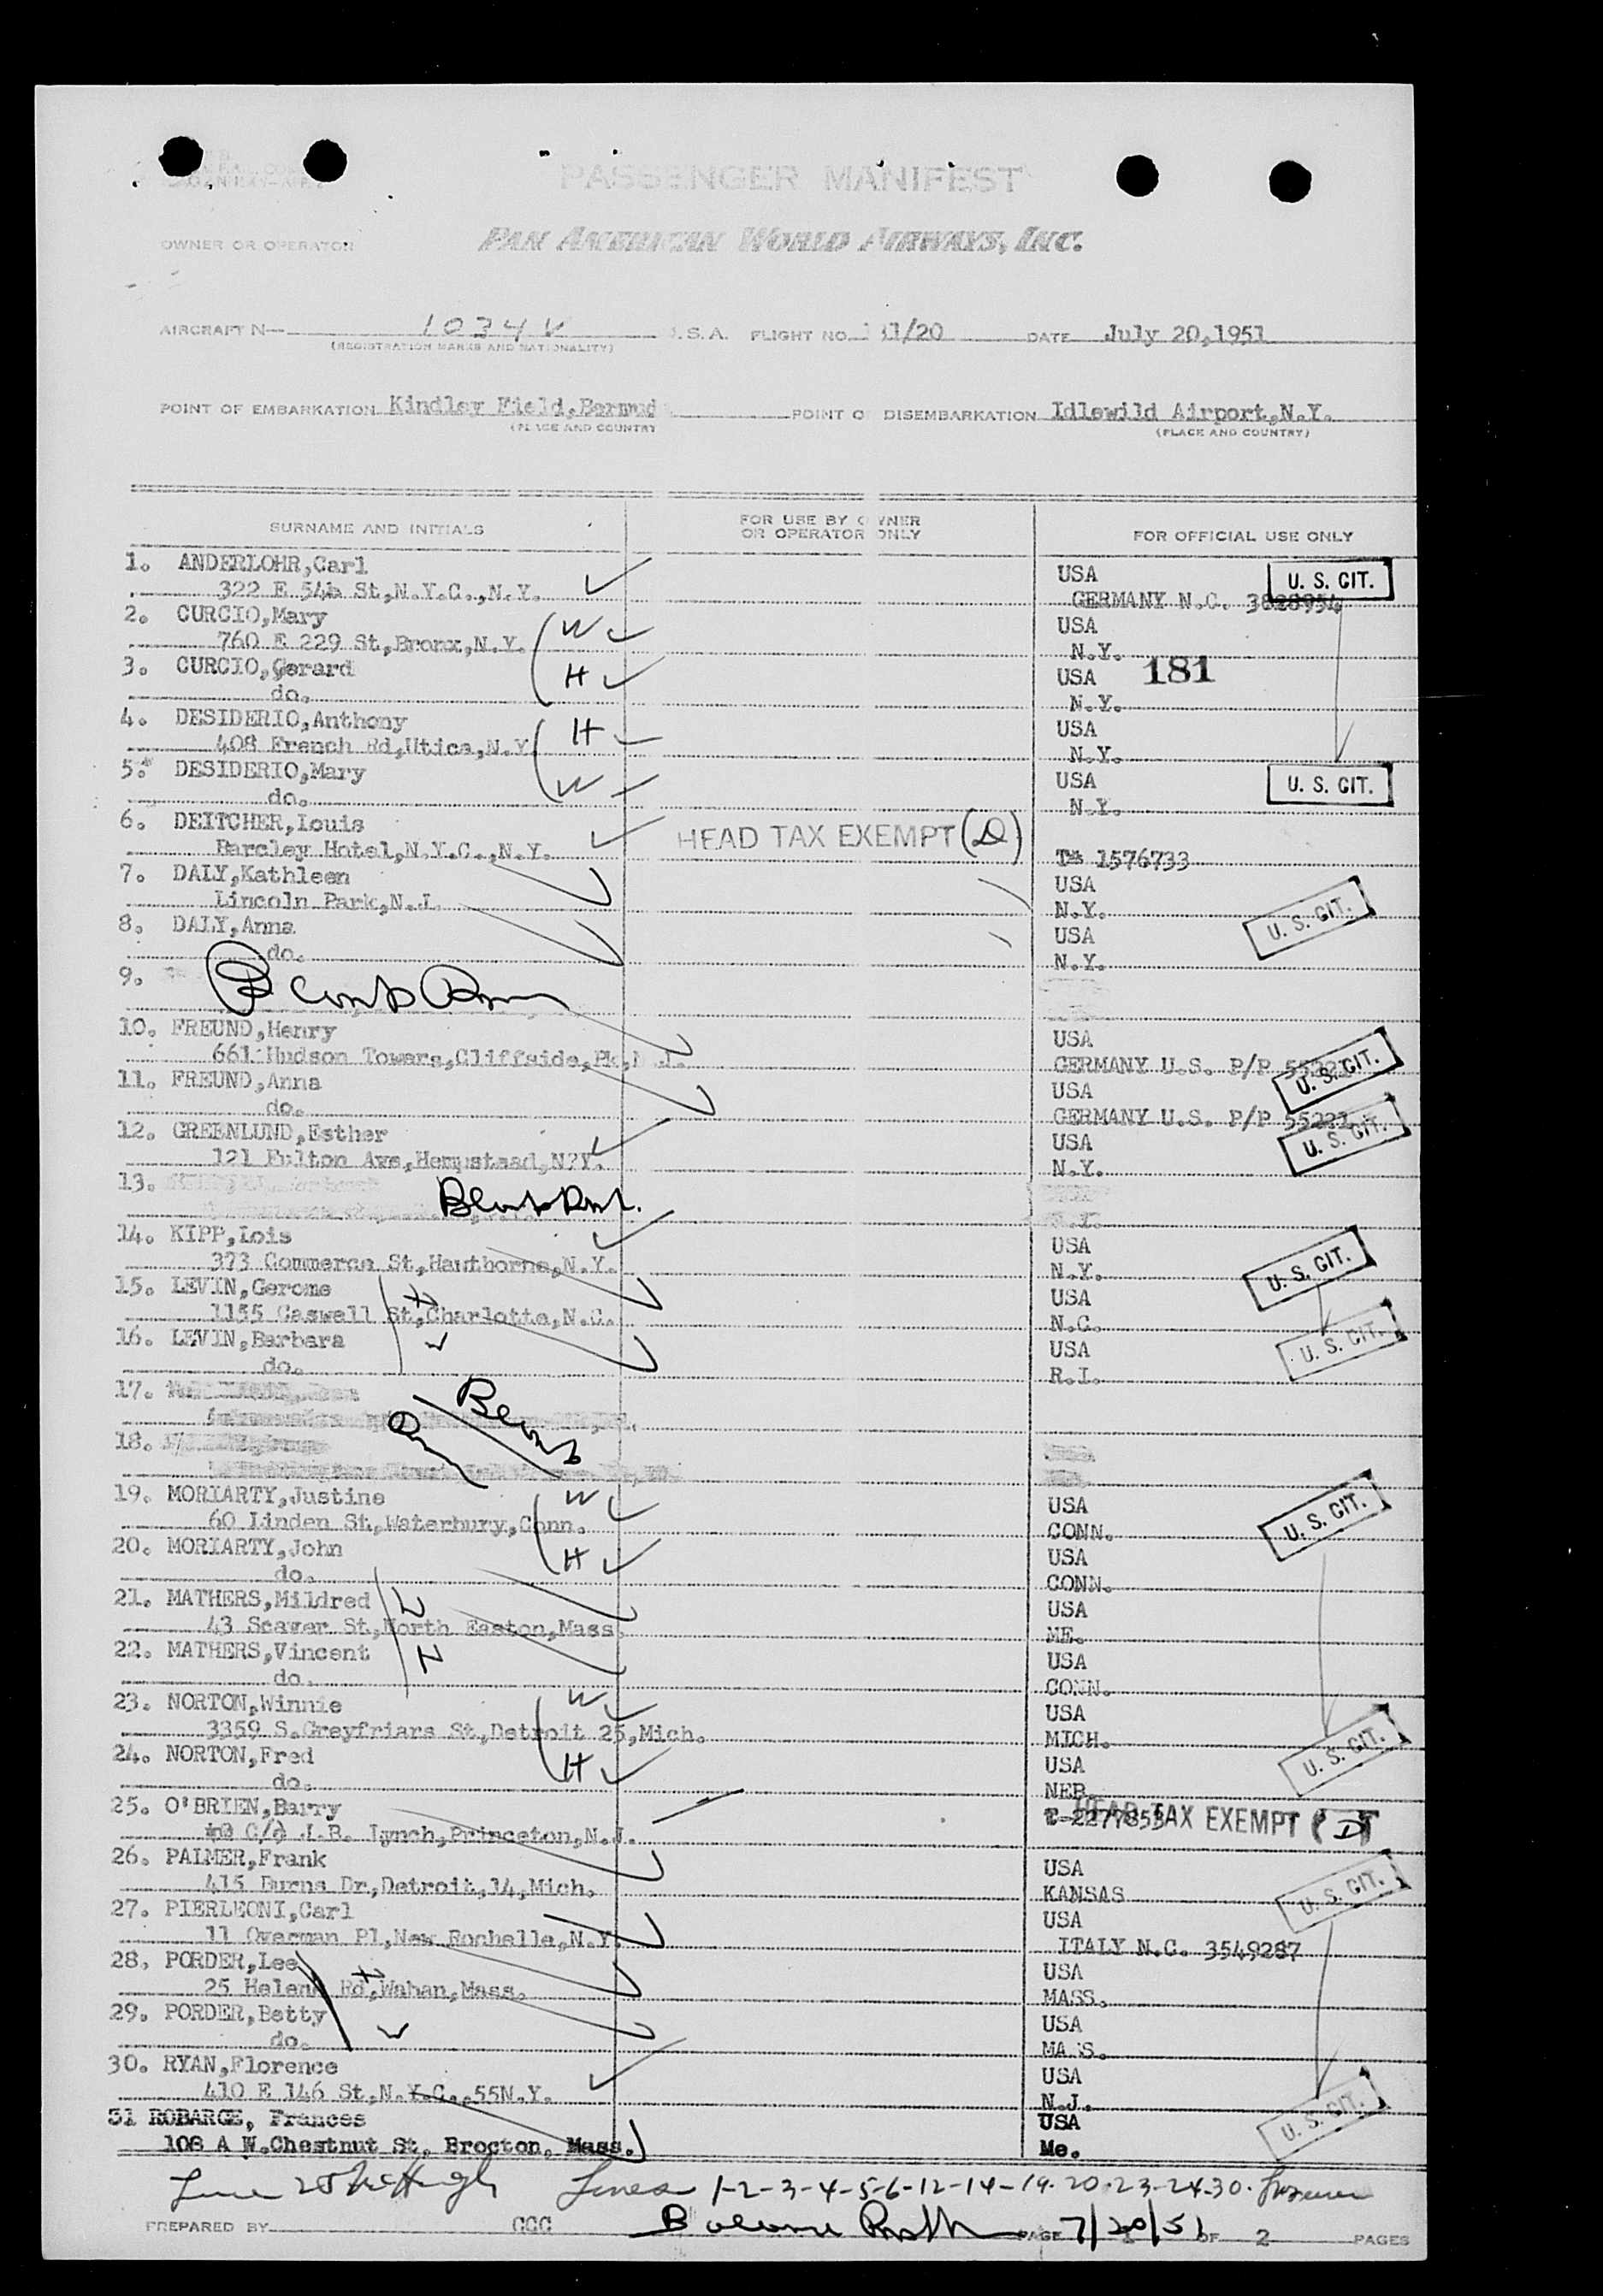 PASSENGER MANIFEST
OWNER OR OPERATOR PAN AMERICAN WORLD AIRWAYS, INC.
AIRCRAFT N— 1034V U.S.A. FLIGHT NO. 131/20 DATE July 20,1951
(REGISTRATION MARKS AND NATIONALITY)
POINT OF EMBARKATION Kindley Field,Bermud POINT O DISEMBARKATION Idlewild Airport,N.Y.
(PLACE AND COUNTRY (PLACE AND COUNTRY)
SURNAME AND INITIALS FOR USE BY OWNER OR OPERATOR ONLY FOR OFFICIAL USE ONLY
1. ANDERLOHR,Carl USA U. S. CIT.
322 E 54h St,N.Y.C.,N.Y. GERMANY N.C. 3828954
2. CURCIO,Mary W USA
760 E 229 St,Bronx,N.Y. N.Y.
3. CURCIO,Gerard H USA 181
do. N.Y.
4. DESIDERIO,Anthony H USA
408 French Rd,Utica,N.Y N.Y.
5. DESIDERIO,Mary W USA U. S. CIT.
do. N.Y.
6. DEITCHER,Louis HEAD TAX EXEMPT (D)
Barcley Hotel,N.Y.C.,N.Y. T# 1576733
7. DALY,Kathleen USA
Lincoln Park,N.J. N.Y. U. S. CIT.
8. DALY,Anna USA
do. N.Y.
9.
10. FREUND,Henry USA
661 Hudson Towers,Cliffside,Pk,N.J. GERMANY U.S. P/P U. S. CIT.
11. FREUND,Anna USA
do. GERMANY U.S. P/P 55221
12. GREENLUND,Esther USA U. S. CIT.
121 Fulton Ave,Hempstead,N?Y. N.Y.
13.
N.Y.
14. KIPP,Lois USA
373 Commerce St,Hawthorne,N.Y. N.Y. U. S. CIT.
15. LEVIN,Gerome H USA
1155 Caswell St,Charlotte,N.C. N.C.
16. LEVIN,Barbara W USA U. S. CIT.
do. R.I.
17. Blank
18.
19. MORIARTY,Justine W USA
60 Linden St,Waterbury,Conn. CONN. U. S. CIT.
20. MORIARTY,John H USA
do. CONN.
21. MATHERS,Mildred USA
43 Seaver St,North Easton,Mass ME.
22. MATHERS,Vincent USA
do. CONN.
23. NORTON,Winnie W USA
3359 S.Greyfriars St,Detroit 25,Mich. MICH. U. S. CIT.
24. NORTON,Fred H USA
do. NEB.
25. O'BRIEN,Barry T-2277853 HEAD TAX EXEMPT (D)
C/o J.B. Lynch,Princeton,N.J.
26. PALMER,Frank USA
415 Burns Dr,Detroit,14,Mich. KANSAS U. S. CIT.
27. PIERLEONI,Carl USA
11 Overman Pl,New Rochelle,N.Y. ITALY N.C. 3549287
28. PORDER,Lee H USA
25 Helene Rd,Waban,Mass. MASS.
29. PORDER,Betty W USA
do. MASS.
30. RYAN,Florence USA
410 E 146 St,N.Y.C.,55N.Y. N.J. U. S. CIT.
31 ROBARGE, Frances USA
108 A W.Chestnut St, Brocton, Mass. Me.
Line 25 Lines 1-2-3-4-5-6-12-14-19-20-23-24-30.
Balance
PREPARED BY CCC PAGE 7/20/51 OF 2 PAGES